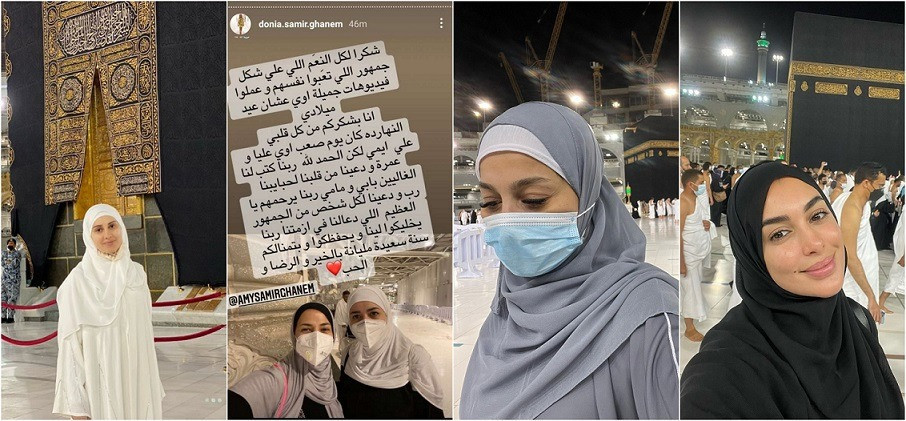 donia.samir.ghanem 46m
شكرا لكل النعم اللي علي شكل
جمهور اللي تعبوا نفسهم و عملوا
فيديوهات جميلة اوي عشان عيد
ميلادي
انا بشكركم من كل قلبي
النهارده كان يوم صعب اوي عليا و
علي ايمي لكن الحمد لله ربنا كتب لنا
عمرة و دعينا من قلبنا لحبايبنا
الغاليين بابي و مامي ربنا يرحمهم يا
رب و دعينا لكل شخص من الجمهور
العظيم اللي دعالنا في ازمتنا ربنا
يخليكوا لينا و يحفظكوا و بنتمنالكم
سنة سعيدة مليانة بالخير و الرضا و
الحب❤️
@AMYSAMIRGHANEM